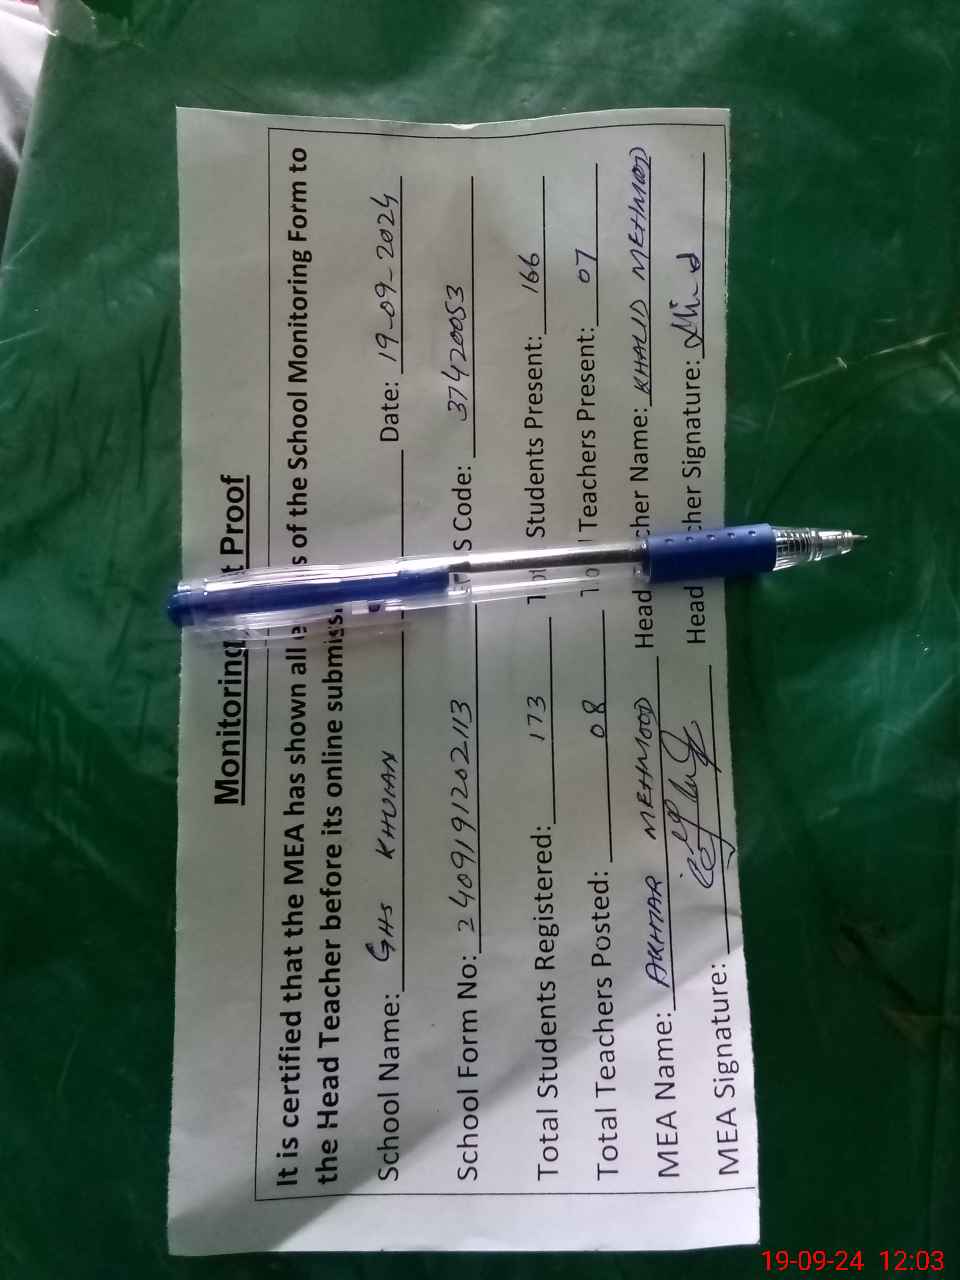 Monitoring t Proof
It is certified that the MEA has shown all s of the School Monitoring Form to
the Head Teacher before its online submiss
School Name: GHS KHUIAN Date: 19-09-2024
School Form No: 2409191202113 S Code: 37420053
Total Students Registered: 173 Students Present: 166
Total Teachers Posted: 08 Teachers Present: 07
MEA Name: AKHTAR MEHMOOD Head cher Name: KHALID MEHMOOD
MEA Signature: Head cher Signature:
19-09-24 12:03